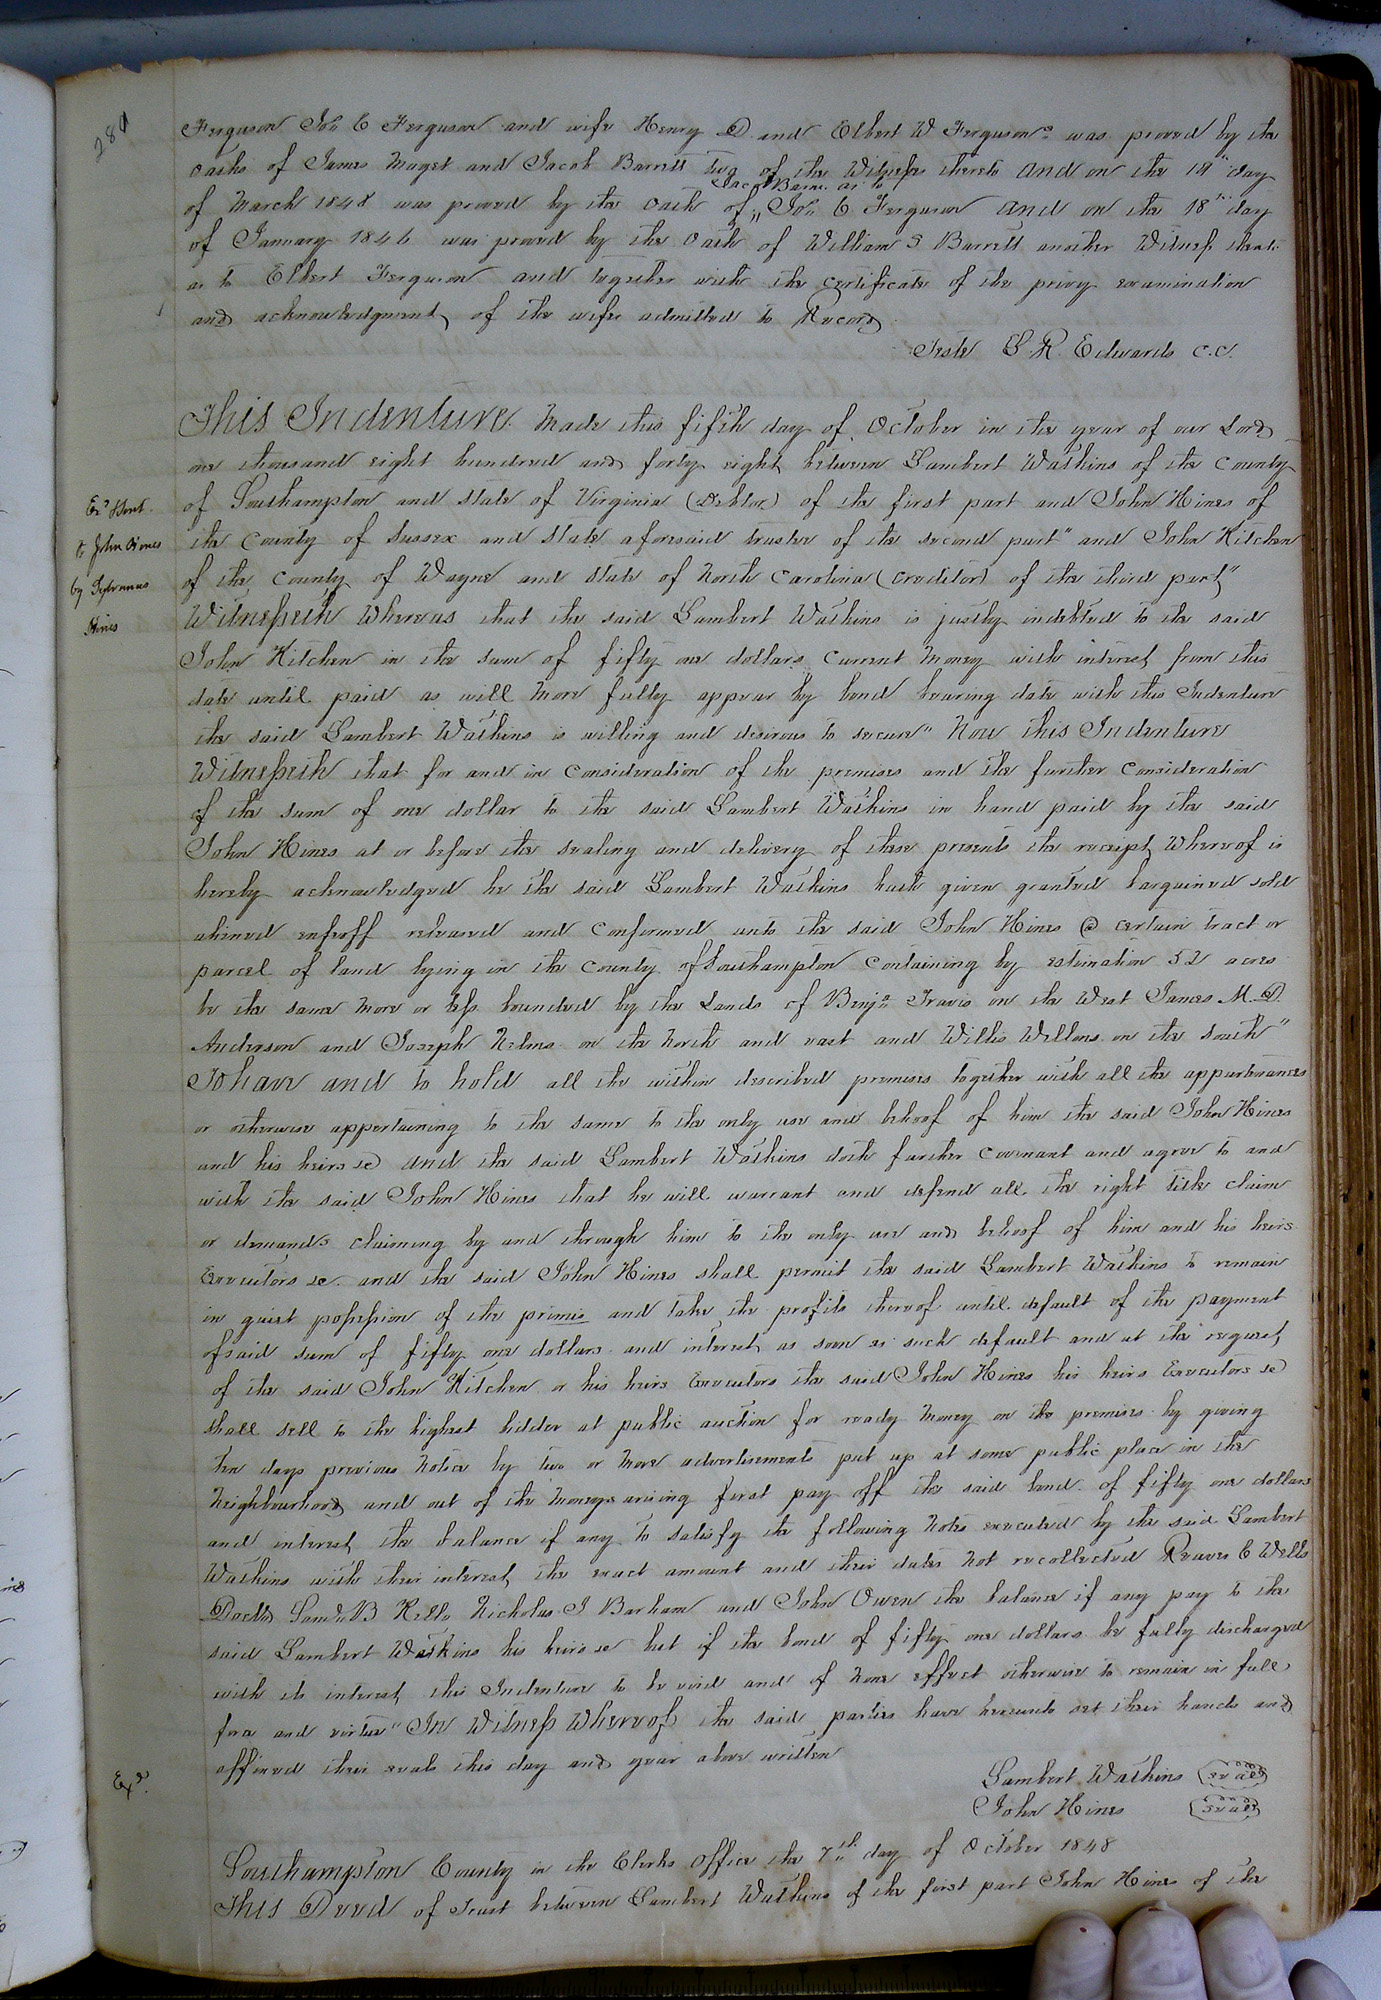 284
Ferguson Jno E Ferguson and wife Henry D and Elbert W Ferguson was proved by the
oaths of James Maget and Jacob Barrett two of the Witnesses thereto and on the 19th day
Jacob Barrett as to
of March 1848 was proved by the oath of " Jno E. Ferguson and on the 18th day
of January 1846 was proved by the oath of William S Barrett another Witness thereto
as to Elbert Ferguson and together with the certificate of the privy examination
and acknowledgment of the wife admitted to Record
Teste L. R. Edwards C.C.
This Indenture Made this fifth day of October in the year of our Lord
one thousand eight hundred and forty eight between Lambert Watkins of the County
of Southampton and State of Virginia (Debtor) of the first part and John Hines of
the County of Sussex and State aforesaid trustee of the second part" and John Kitchen
of the County of Wayne and State of North Carolina (Creditor) of the third part"
Witnesseth Whereas that the said Lambert Watkins is justly indebted to the said
John Kitchen in the sum of fifty one dollars current money with interest from this
date until paid as will more fully appear by bond bearing date with this Indenture
the said Lambert Watkins is willing and desirous to secure" Now this Indenture
Witnesseth that for and in consideration of the premises and the further consideration
of the sum of one dollar to the said Lambert Watkins in hand paid by the said
John Hines at or before the sealing and delivery of these presents the receipt Whereof is
hereby acknowledged he the said Lambert Watkins hath given granted bargained sold
aliened enfeoff released and confirmed unto the said John Hines a certain tract or
parcel of land lying in the County of Southampton Containing by estimation 52 acres
be the same more or less bounded by the Lands of Benjn Travis on the West James M. D.
Anderson and Joseph Nelms on the North and east and Willis Wellons on the South"
To have and to hold all the within described premises together with all the appurtenances
or otherwise appertaining to the same to the only use and behoof of him the said John Hines
and his heirs &c and the said Lambert Watkins doth further covenant and agree to and
with the said John Hines that he will warrant and defend all the right title claim
or demands claiming by and through him to the only use and behoof of him and his heirs
Executors &c. and the said John Hines shall permit the said Lambert Watkins to remain
in quiet possession of the primis and take the profits thereof until default of the payment
of said sum of fifty one dollars and interest as soon as such default and at the request
of the said John Kitchen or his heirs Executors the said John Hines his heirs Executors &c
shall sell to the highest bidder at public auction for ready money on the premises by giving
ten days previous notice by two or more advertisements put up at some public place in the
Neighbourhood and out of the moneys arising first pay off the said bond of fifty one dollars
and interest the balance if any to satisfy the following notes executed by the said Lambert
Watkins with their interest the exact amount and their dates not recollected Reaves E Wells
Doctr Saml B Kello Nicholas J Barham and John Owen the balance if any pay to the
said Lambert Watkins his heirs &c but if the bond of fifty one dollars be fully discharged
with its interest this Indenture to be void and of none effect otherwise to remain in full
force and virtue" In Witness Whereof the said parties have hereunto set their hands and
affixed their seals this day and year above written
Lambert Watkins seal
John Hines seal
Southampton County in the Clerks Office the 7th day of October 1848
This Deed of Trust between Lambert Watkins of the first part John Hines of the
to John Hines
by
Hines
Exd.